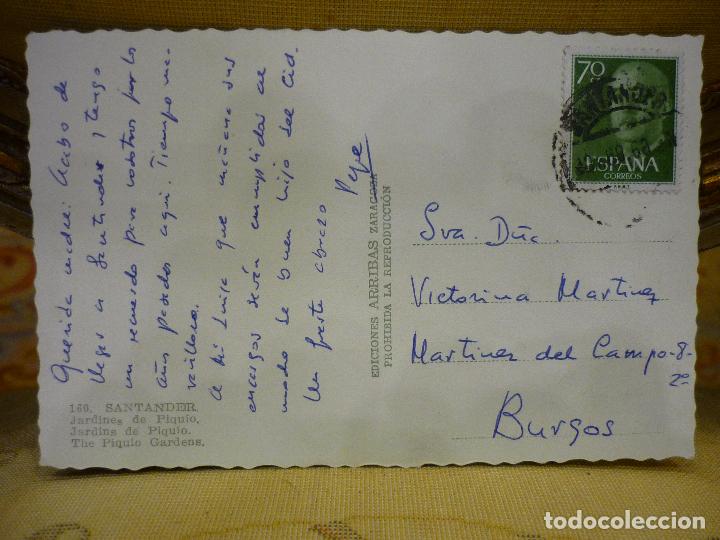 Querida madre: Acabo de
llegar a Santander y tengo
un recuerdo para vosotros por los
años pasados aqui. Tiempo ma-
ravilloso.
A Mª Luisa que mañana sus
encargos serán cumplidos al
modo de buen hijo del Cid.
Un fuerte abrazo
Pepe
160. SANTANDER.
Jardines de Piquío.
Jardins de Piquio.
The Piquio Gardens.
EDICIONES ARRIBAS ZARAGOZA
PROHIBIDA LA REPRODUCCIÓN
70
ESPAÑA
CORREOS
Sra. Dña.
Victorina Martinez
Martinez del Campo-8-
2º
Burgos
todocoleccion
todocoleccion.net